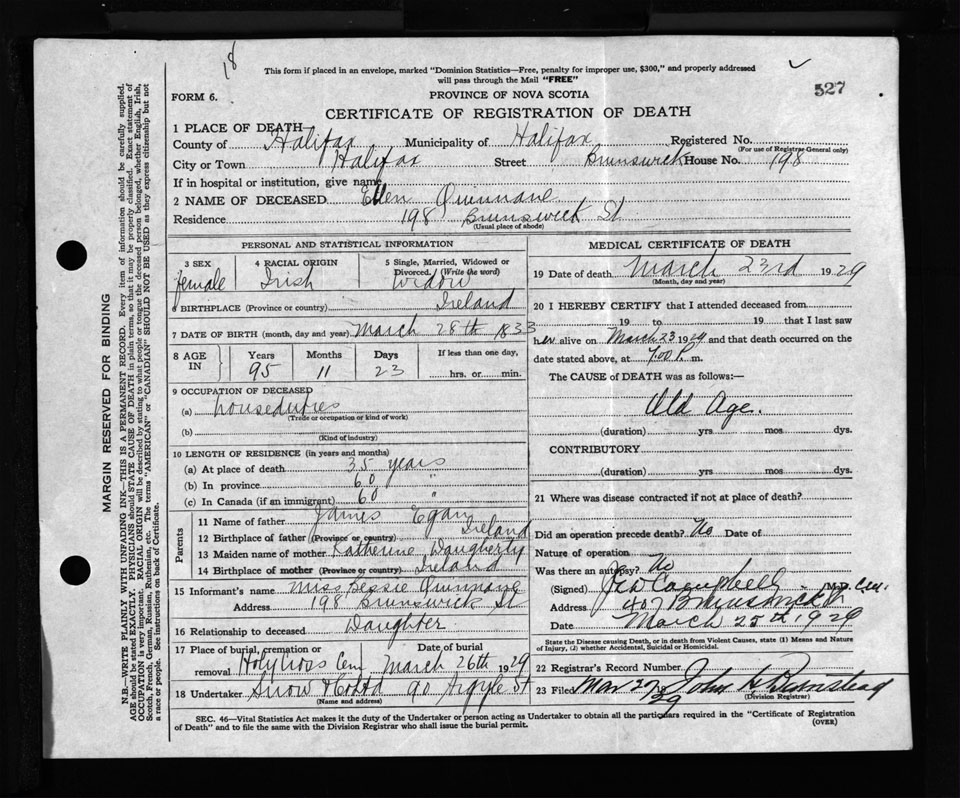 18
This form if placed in an envelope, marked "Dominion Statistics—Free, penalty for improper use, $300," and properly addressed
will pass through the Mail "FREE"
527
FORM 6.
PROVINCE OF NOVA SCOTIA
CERTIFICATE OF REGISTRATION OF DEATH
1 PLACE OF DEATH—
County of Halifax Municipality of Halifax Registered No.
(For use of Registrar-General only)
City or Town Halifax Street Brunswick House No. 198
If in hospital or institution, give name
2 NAME OF DECEASED Ellen Quinnane
Residence 198 Brunswick St
(Usual place of abode)
PERSONAL AND STATISTICAL INFORMATION
3 SEX 4 RACIAL ORIGIN 5 Single, Married, Widowed or
Divorced. (Write the word)
female Irish Widow
6 BIRTHPLACE (Province or country) Ireland
7 DATE OF BIRTH (month, day and year) March 28th 1833
8 AGE IN Years Months Days If less than one day,
95 11 23 hrs. or min.
9 OCCUPATION OF DECEASED
(a) houseduties
(Trade or occupation or kind of work)
(b)
(Kind of industry)
10 LENGTH OF RESIDENCE (in years and months)
(a) At place of death 35 years
(b) In province 60 "
(c) In Canada (if an immigrant) 60 "
Parents
11 Name of father James Egan
12 Birthplace of father (Province or country) Ireland
13 Maiden name of mother Katherine Daugherty
14 Birthplace of mother (Province or country) Ireland
15 Informant's name Miss Bessie Quinnane
Address 198 Brunswick St
16 Relationship to deceased Daughter
17 Place of burial, cremation or Date of burial
removal Holy Cross Cem March 26th 1929
18 Undertaker Snow & Co Ltd 90 Argyle St
(Name and address)
MEDICAL CERTIFICATE OF DEATH
19 Date of death March 23rd 1929
(Month, day and year)
20 I HEREBY CERTIFY that I attended deceased from
19 to 19 that I last saw
her alive on March 23 1929 and that death occurred on the
date stated above, at 7.00 P. m.
The CAUSE of DEATH was as follows:—
Old Age.
(duration) yrs mos. dys.
CONTRIBUTORY
(duration) yrs mos. dys.
21 Where was disease contracted if not at place of death?
Did an operation precede death? No Date of
Nature of operation
Was there an autopsy? No
(Signed) Campbell M.D.
Address 407 Brunswick St
Date March 25th 1929
State the Disease causing Death, or in death from Violent Causes, state (1) Means and Nature
of Injury, (2) whether Accidental, Suicidal or Homicidal.
22 Registrar's Record Number
23 Filed Mar 27/29 John H. Bumstead
(Division Registrar)
SEC. 46—Vital Statistics Act makes it the duty of the Undertaker or person acting as Undertaker to obtain all the particulars required in the "Certificate of Registration
of Death" and to file the same with the Division Registrar who shall issue the burial permit. (OVER)
MARGIN RESERVED FOR BINDING
N.B.—WRITE PLAINLY WITH UNFADING INK—THIS IS A PERMANENT RECORD. Every item of information should be carefully supplied.
AGE should be stated EXACTLY. PHYSICIANS should STATE CAUSE OF DEATH in plain terms, so that it may be properly classified. Exact statement of
OCCUPATION is very important. RACIAL ORIGIN will be described by stating to what people or tongue the deceased person belonged, whether English, Irish,
Scotch, French, German, Russian, Ruthenian, etc. The terms "AMERICAN" or "CANADIAN" SHOULD NOT BE USED as they express citizenship but not
a race or people. See instructions on back of Certificate.